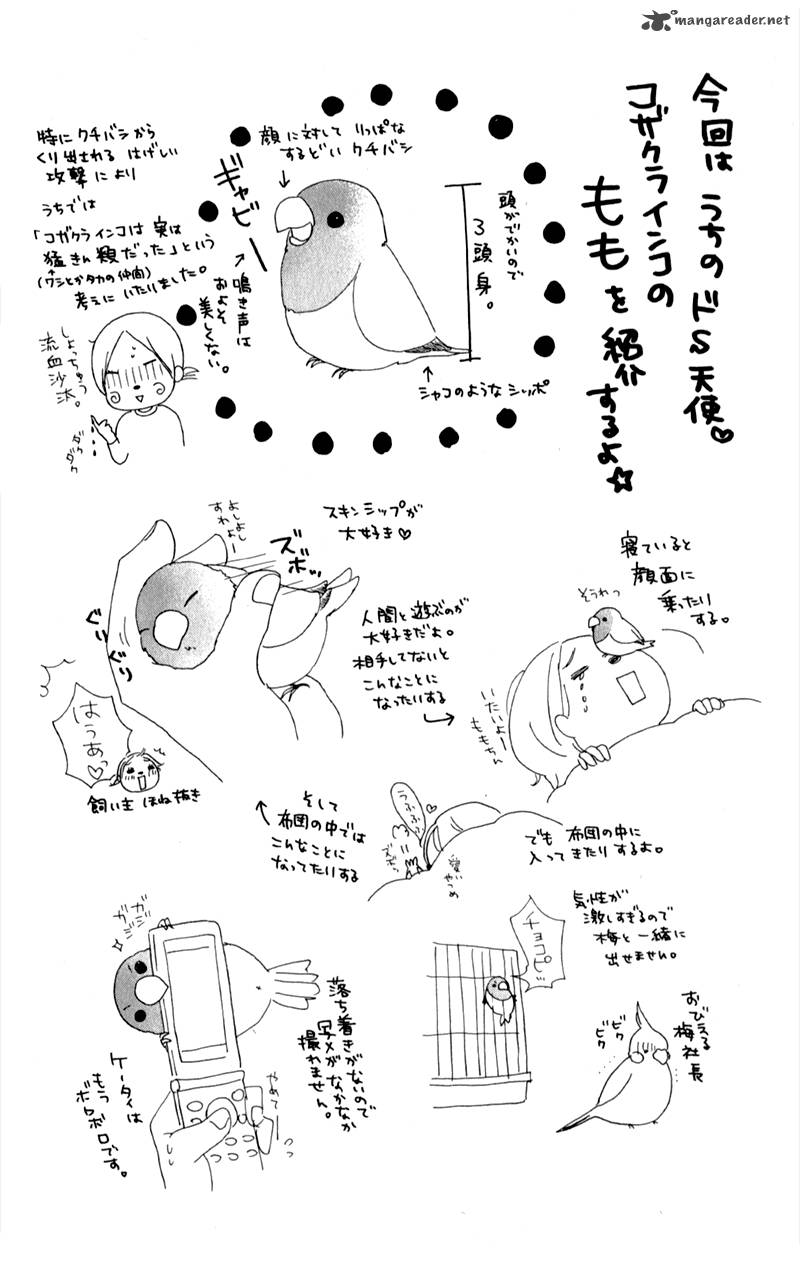 mangareader.net
今回は うちの ドS 天使♡
コザクラインコの
ももを 紹介するよ☆
顔に対して りっぱな
するどい クチバシ
ギャピー
↑鳴き声は
およそ
美しくない。
頭がでかいので
3頭身。
シャコのような シッポ
特に クチバシから
くり出される はげしい
攻撃により
うちでは
「コザクラインコは 実は
猛きん類だった」という
(ワシとかタカの仲間)
考えに いたりました。
しょっちゅう
流血沙汰。
ダク
ダク
スキンシップが
大好き♡
よしよし
すわよー
ズボッ
ぐり
ぐり
はうあっ♡
飼い主 ほね抜き
人間と 遊ぶのが
大好きだよ。
相手してないと
こんなことに
なったりする
寝ていると
顔面に
乗ったり
する。
そうれっ
いたいよー
ももちん
でも 布団の中に
入って きたり するよ。
うふふふ♡
ズボッ
愛い
やつめ
そして
布団の中では
こんなことに
なってたりする
気性が
激しすぎるので
梅と一緒に
出せません。
チョコピッ
おびえる
梅社長
ビク
ビク
ガジ
ガジ
落ち着きがないので
写メがなかなか
撮れません。
やめてー
ケータイは
もう
ボロボロです。